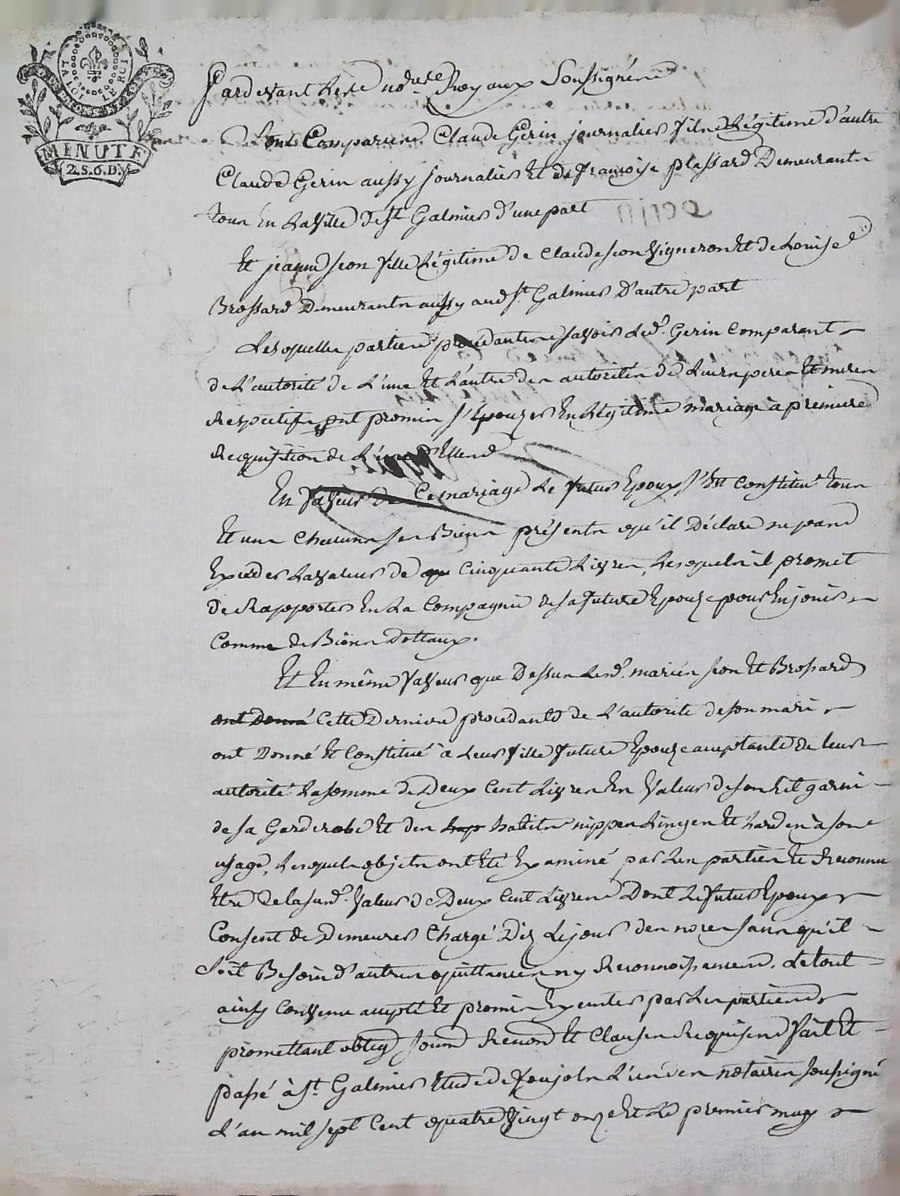 LA LOI ET LE ROI
MINUTE
2.S.6.D.
Pardevant les no.res Royaux Soussignés
Sont Comparus Claude Gerin journalier fils Légitime d'autre
Claude Gerin aussy journalier et de françoise plessard Demeurants
tous En la Ville de St. Galmier d'une part
Et jeanne jeon fille Légitime de Claude jeon Vigneron Et de Louise
Brossard Demeurants aussy aud. St. Galmier D'autre part
Lesquelles parties procedantes savoir Led. Gerin Comparant
de L'autorité de L'une Et L'autre des autorités de Leurs peres Et meres
Respectifs ont promis s'Epouzer En Légitime mariage à premiere
Requisition de L'une d'Elles
En faveur de Ce mariage Le futur Epoux s'Est Constitué tous
Et uns Chacuns ses Biens présents qu'il Déclare ne pas
Exceder La valeur de Cinquante Livres, Lesquels il promet
de Rapporter En La Compagnie de sa future Epouze pour En jouir
Comme de Biens Dottaux.
Et En même faveur que Dessus Lesd. mariés jeon Et Brossard
ont donné Cette Derniere procedante de L'autorité de son mari
ont Donné Et Constitué à Leur fille future Epouze acceptante de leur
autorité La somme de Deux Cent Livres En Valeur de son Lit garni
de sa Garderobe Et des habits nippes Linges Et hardes à son
usage, Lesquels objets ont Eté Examiné par Les parties Et Reconnu
Etre de La susd. Valeur de Deux Cent Livres Dont Le futur Epoux
Consent de Demeurer Chargé Dez Le jour des noces sans qu'il
Soit Besoin d'autres quittances ny Reconnoissances. Le tout
ainsy Convenu accepté Et promis Executer par Les parties
promettant oblig Soum Renon Et Clauses Requises fait Et
passé à St. Galmier Etude de L'un des notaires soussigné
L'an mil sept Cent quatre Vingt onze Et Le premier may